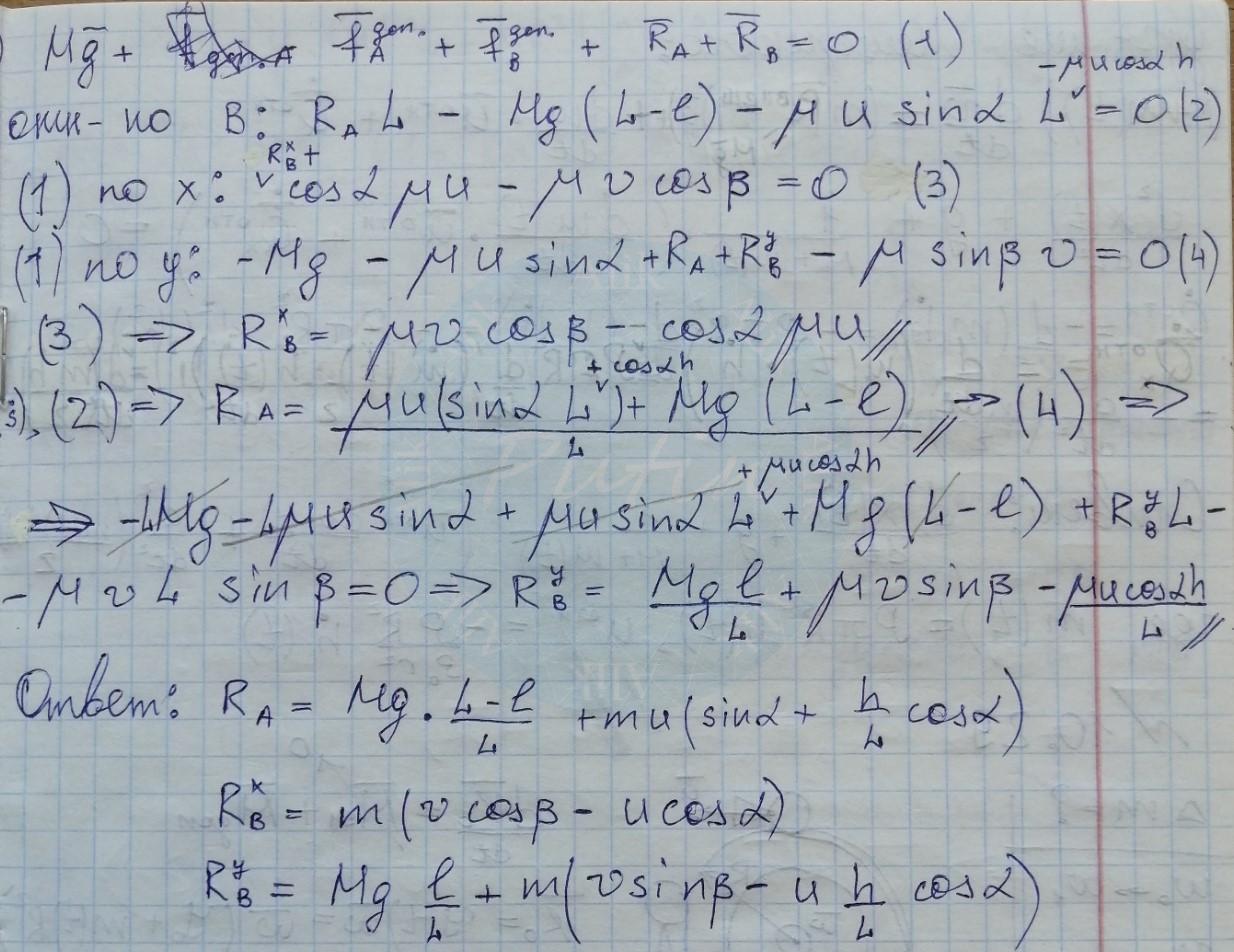 Mḡ + f̄_A^доп. + f̄_B^доп. + R̄_A + R̄_B = 0 (1)
отн-но B: R_A L - Mg (L-l) - μ u sinα L - μ u cosα h = 0 (2)
(1) по x: R_B^x + cosα μu - μ v cosβ = 0 (3)
(1) по y: -Mg - μ u sinα + R_A + R_B^y - μ sinβ v = 0 (4)
(3) => R_B^x = μv cosβ - cosα μu //
(2) => R_A = (μu(sinα L + cosα h) + Mg (L-l)) / L // → (4) =>
=> -LMg - Lμu sinα + μu sinα L + μu cosα h + Mg (L-l) + R_B^y L -
- μ v L sin β = 0 => R_B^y = Mgl/L + μv sinβ - μu cosα h/L //
Ответ: R_A = Mg · (L-l)/L + mu (sinα + h/L cosα)
R_B^x = m (v cosβ - u cosα)
R_B^y = Mg l/L + m (v sinβ - u h/L cosα)